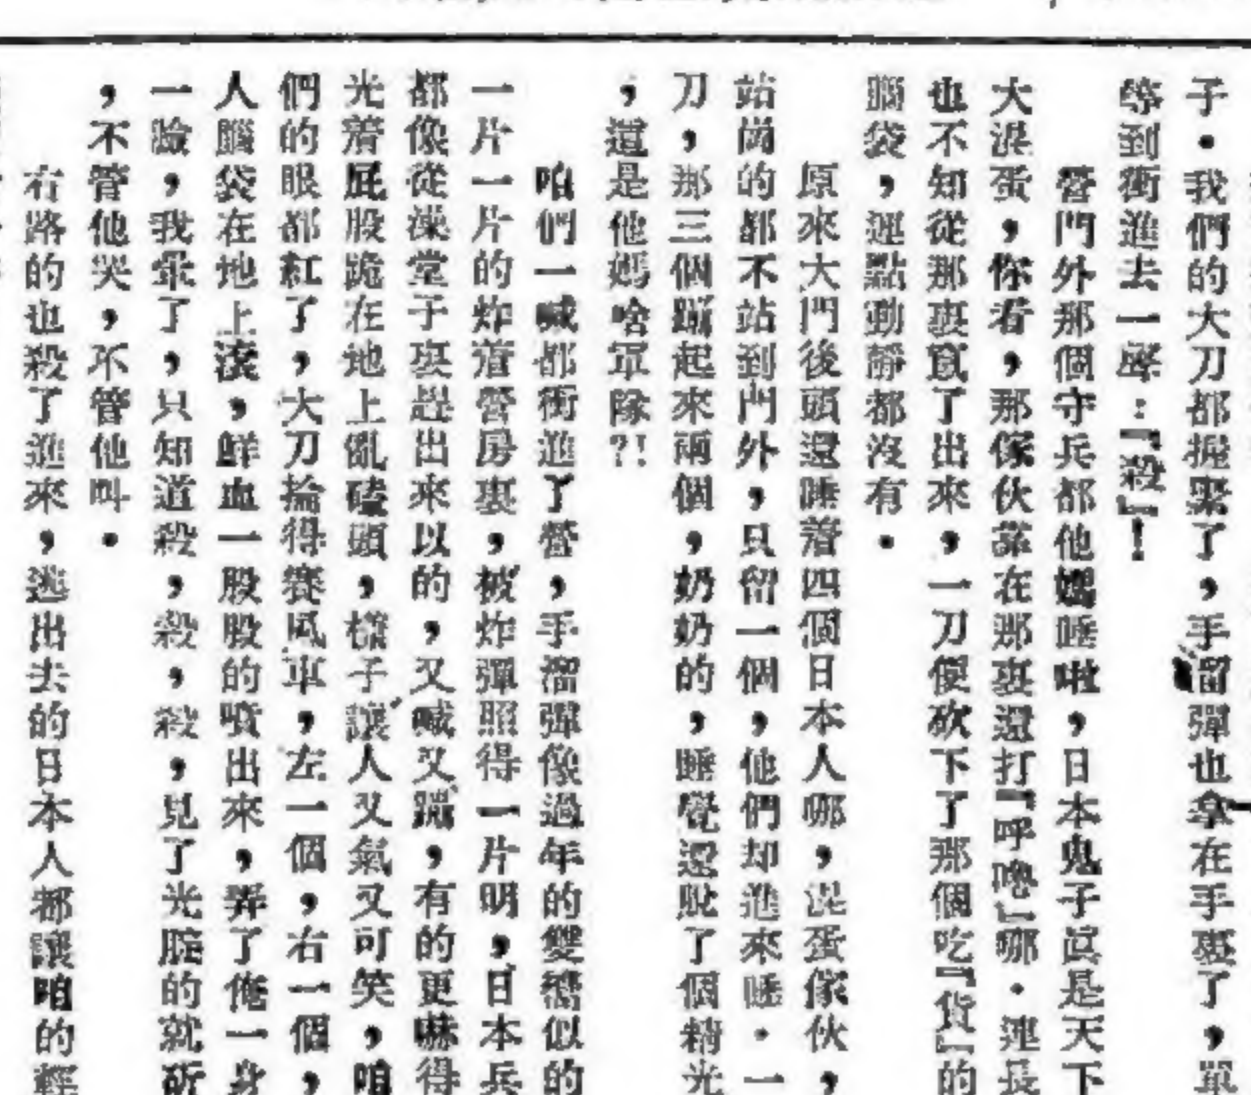 子．我們的大刀都握緊了，手溜彈也拿在手裏了，單
等到衝進去一聲：『殺』！
營門外那個守兵都他媽睡啦，日本鬼子眞是天下
大混蛋，你看，那傢伙靠在那裏還打『呼嚕』哪．連長
也不知從那裏竄了出來，一刀便砍下了那個吃『貨』的
腦袋，連點動靜都沒有．
原來大門後頭還睡着四個日本人哪，混蛋傢伙，
站崗的都不站到門外，只留一個，他們却進來睡．一
刀，那三個蹦起來兩個，奶奶的，睡覺還脫了個精光
，這是他媽啥軍隊？！
咱們一喊都衝進了營，手溜彈像過年的雙響似的
一片一片的炸着營房裏，被炸彈照得一片明，日本兵
都像從澡堂子裏趕出來似的，又喊又蹦，有的更嚇得
光着屁股跪在地上亂磕頭，樣子讓人又氣又可笑，咱
們的眼都紅了，大刀掄得賽風車，左一個，右一個，
人腦袋在地上滾，鮮血一股股的噴出來，弄了俺一身
一臉，我暈了，只知道殺，殺，殺，見了光腚的就砍
，不管他哭，不管他叫．
右路的也殺了進來，逃出去的日本人都讓咱的輕